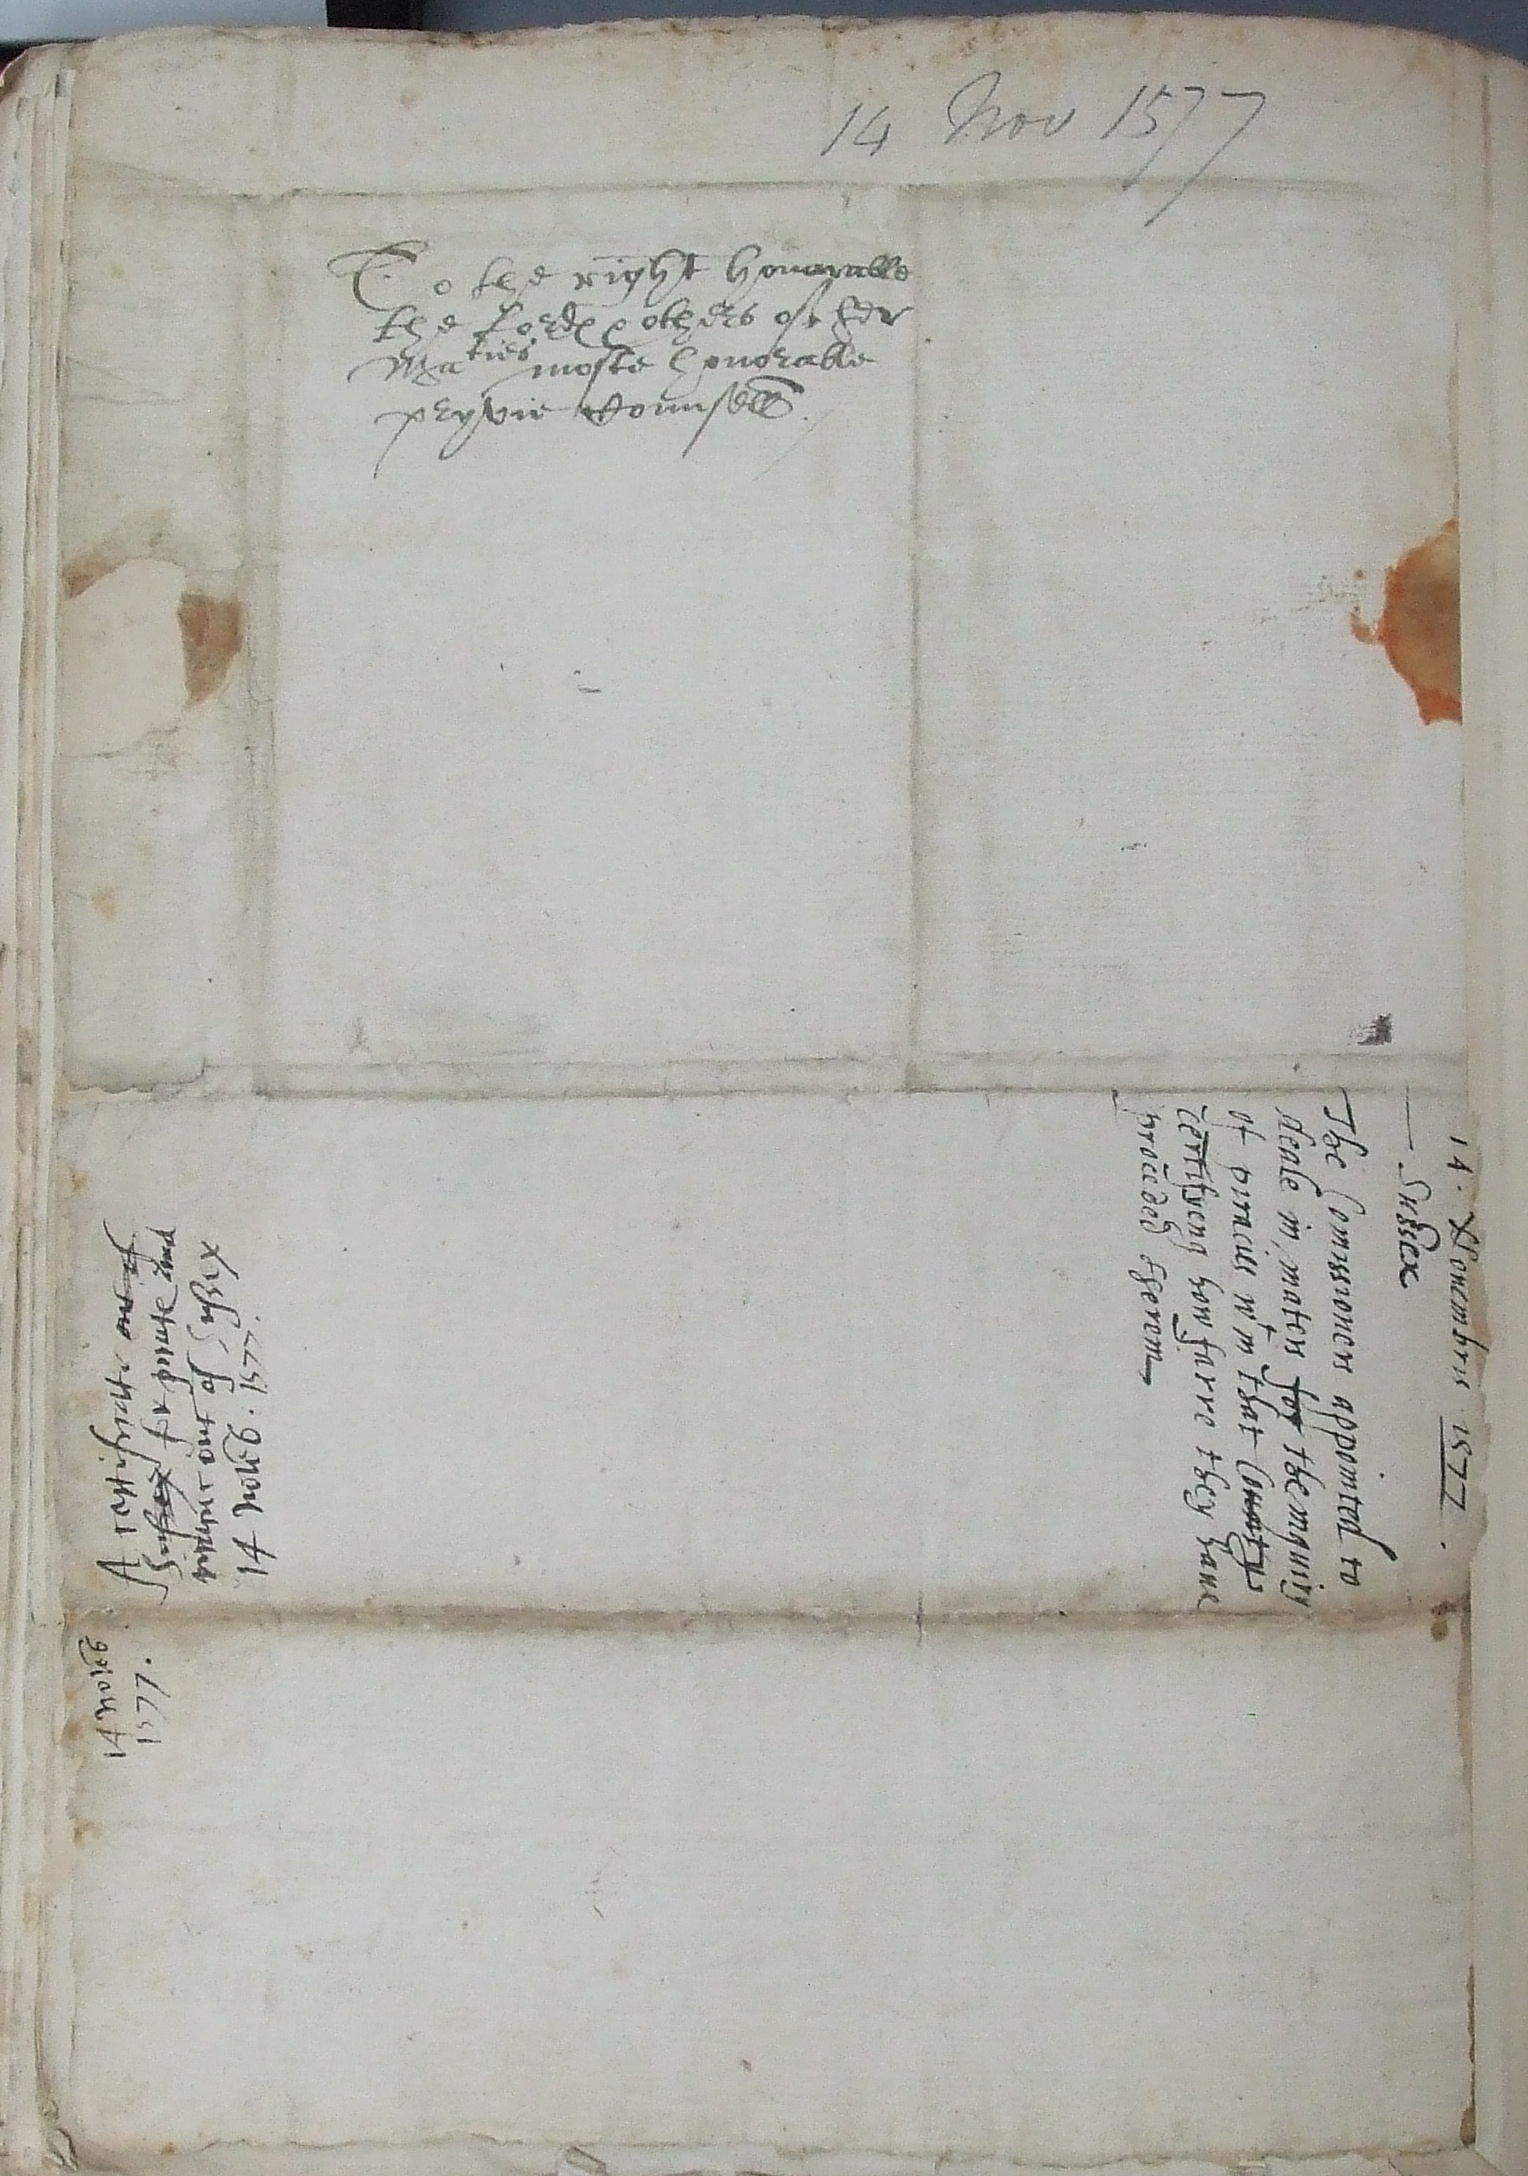 14 Nov 1577
To the right honorable
the Lordℯ & others of her
Maties moste honorable
pryvie Counsell.
14. Nouembris 1577.
Sussex
The Comissioners appointed to
deale in maters for thenquiry
of piracies wtin that Countye
certifyeng how farre they haue
proceded therein
A certificate
Sussex for pirates and
out of Sussex
14 Noueb. 1577.
14 Noueb
1577.